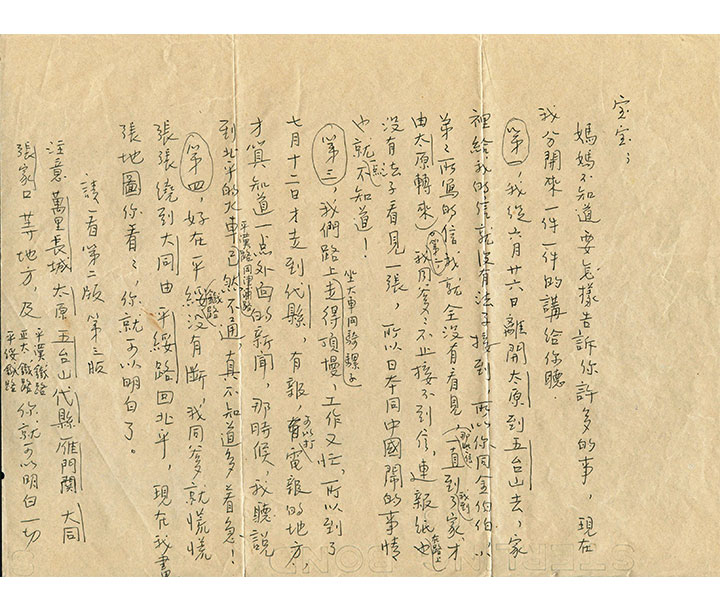 宝宝：
媽媽不知道要怎樣告訴你許多的事，現在
我分開來一件一件的講給你聽．
第一，我從六月廿六日離開太原到五台山去，家
裡給我的信就沒有法子接到，所以你同金伯伯、小
弟弟所寫的信我就全沒有看見（那些信一直到我到了家，才
由太原轉來）第二，我同爹爹不止接不到信，連報紙在路上也
沒有法子看見一張，所以日本同中國鬧的事情
也就一点不知道！
第三，我們路上坐大車同騎騾子走得頂慢，工作又忙，所以到了
七月十二日才走到代縣，有報，可以打電報的地方，
才算知道一点外面的新聞，那時候，我聽說
到北平的火車平漢路同津浦路已然不通，真不知道多着急！
第四，好在平綏鐵路沒有斷，我同爹爹就慌慌
張張繞到大同由平綏路回北平，現在我畫
張地圖你看看，你就可以明白了。
請看第二版 第三版
注意萬里長城 太原 五台山 代縣 雁門關 大同
張家口 等地方，及平漢鐵路 正太鐵路 平綏鐵路 你就可以明白一切